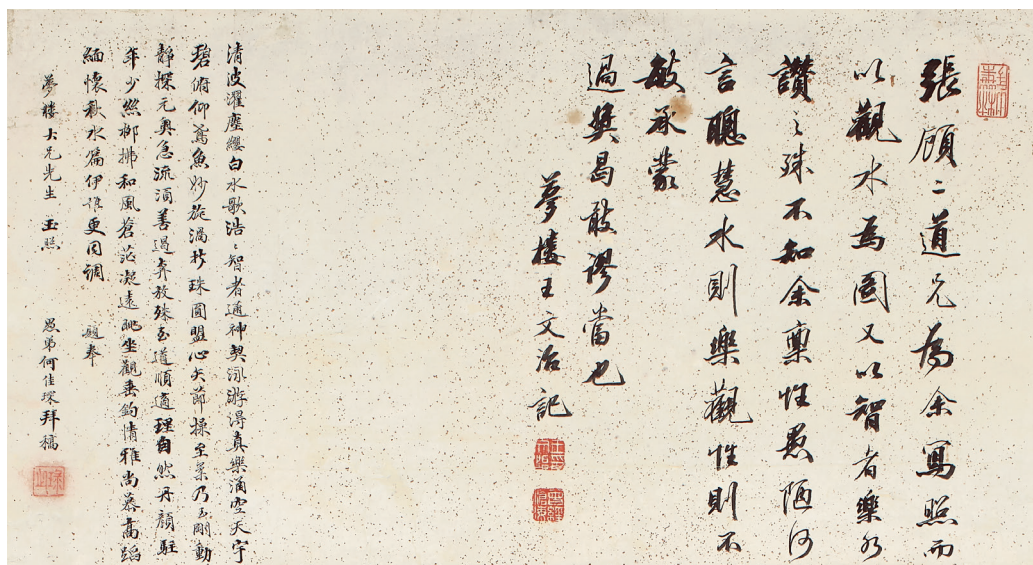 張顧二道兄為余寫照而
以觀水為圖又以智者樂水
讚之殊不知余稟性愚陋何
言聰慧水則樂觀性則不
敏承蒙
過奬曷敢謬當也
夢樓王文治記
清波濯塵纓白水歌浩〻智者通神契泳游得真樂涵空天宇
碧俯仰鳶魚妙旋渦抒珠圓盟心矢節操至柔乃至剛動
靜探元奧急流涌善過奔放殊至道順適理自然丹顏駐
年少絲柳拂和風蒼茫凝遠眺坐觀垂釣情雅尚慕高蹈
緬懷秋水篇伊誰更同調
題奉
夢樓大兄先生 玉照
愚弟何佳琛拜稿